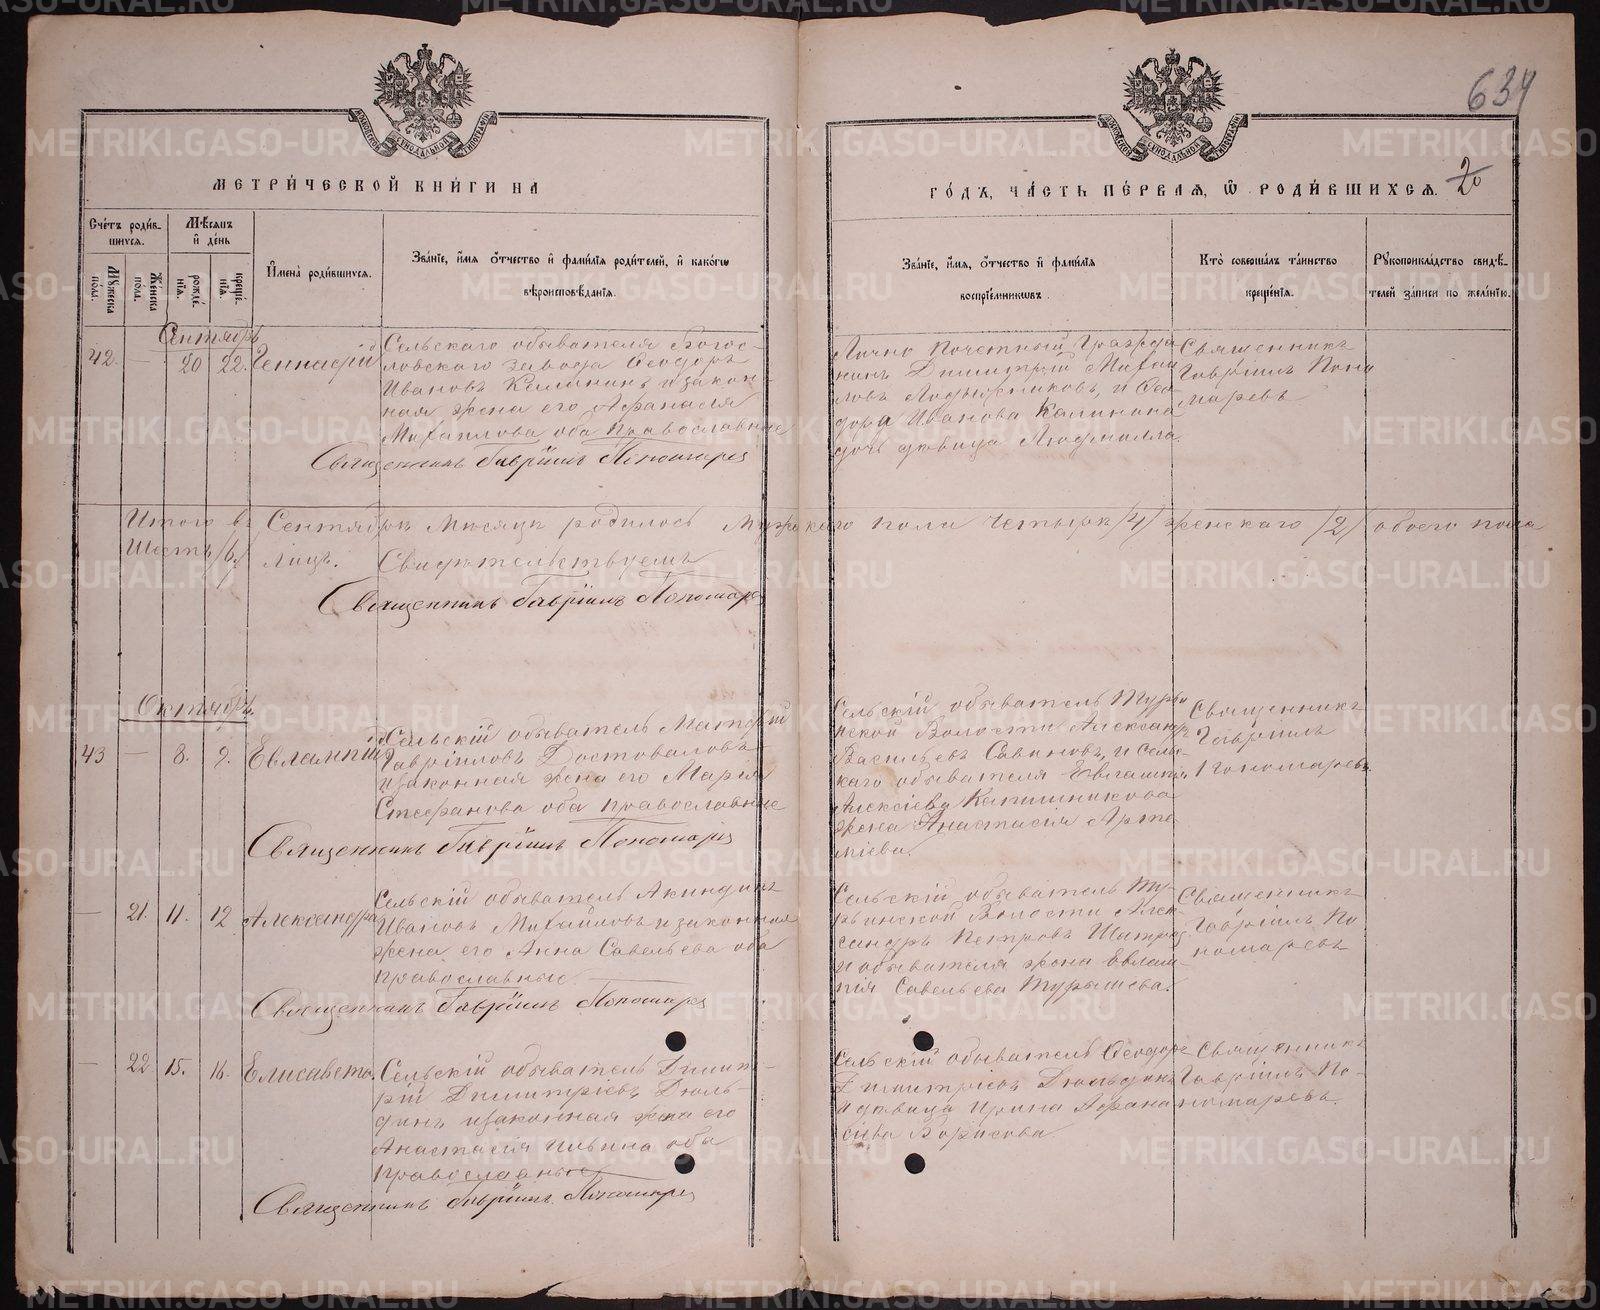 634
20
МОСКОВСКОЙ СѴНОДАЛЬНОЙ ТИПОГРАФІИ
МОСКОВСКОЙ СѴНОДАЛЬНОЙ ТИПОГРАФІИ
МЕТРИ́ЧЕСКОЙ КНИ́ГИ НА
ГО́ДЪ, ЧА́СТЬ ПЕ́РВАЯ, Ѿ РОДИ́ВШИХСЯ.
Сче́тъ роди́в-
шихся.
Мꙋ́жеска
по́ла.
Же́нска
по́ла.
Мѣ́сяцъ
и҆ де́нь
рожде́-
нія.
креще́-
нія.
И҆мена̀ роди́вшихся.
Зва́ніе, и҆́мя ѻ҆́тчество и҆ фами́лія роди́телей, и҆ како́гѡ
вѣроисповѣ́данія.
Зва́ніе, и҆́мя, ѻ҆́тчество и҆ фами́лія
воспріе́мниковъ.
Кто̀ соверша́лъ та́инство
креще́нія.
Рꙋкоприкла́дство свидѣ́-
телей за́писи по жела́нію.
Сентябрь
42. — 20 22. Геннадій
Сельскаго обывателя Богос-
ловскаго завода Ѳеодоръ
Ивановъ Калининъ и закон-
ная жена его Аѳанасія
Михаилова оба православные
Священникъ Гавріилъ Пономарев
Лично Почетный Гражда
нинъ Димитрій Михаи
ловъ и Ѳео-
дора Иванова Калинина
дочь дѣвица Людмилла.
Священникъ
Гавріилъ Поно
маревъ
Итого въ Сентябрѣ Мѣсяцѣ родилось Мужскаго пола четыре /4/ женскаго /2/ обоего пола
Шесть /6/ лицъ. Свидѣтельствуемъ
Священникъ Гавріилъ Пономарев
Октябрь.
43 — 8. 9. Евлампій
Сельскій обыватель Матѳій
Гавріиловъ Достоваловъ
и законная жена его Марія
Стефанова оба православные
Священникъ Гавріилъ Пономарев
Сельскій обыватель Турьи
нской Волости Александръ
Васильевъ Савиновъ, и Сель-
скаго обывателя Евлампія
Алексіева Калашникова
жена Анастасія Арте-
міева.
Священникъ
Гавріилъ
Пономаревъ
— 21. 11. 12. Александра
Сельскій обыватель Акиндинъ
Ивановъ Михайловъ и законная
жена его Анна Савельева оба
православные
Священникъ Гавріилъ Пономарев
Сельскій обыватель Ту-
рьинской Волости Алек-
сандръ Петровъ
и обывателя жена Евлам-
пія Савельева Турышева.
Священникъ
Гавріилъ По
номаревъ
— 22 15. 16. Елисавета.
Сельскій обыватель Димит-
рій Димитріевъ Дюль-
динъ и законная жена его
Анастасія Ильина оба
православные
Священникъ Гавріилъ Пономарев
Сельскій обыватель Ѳеодоръ
Димитріевъ Дюльдинъ
и дѣвица Ирина Аѳана
сіева Борисова
Священникъ
Гавріилъ По-
номаревъ.
METRIKI.GASO-URAL.RU